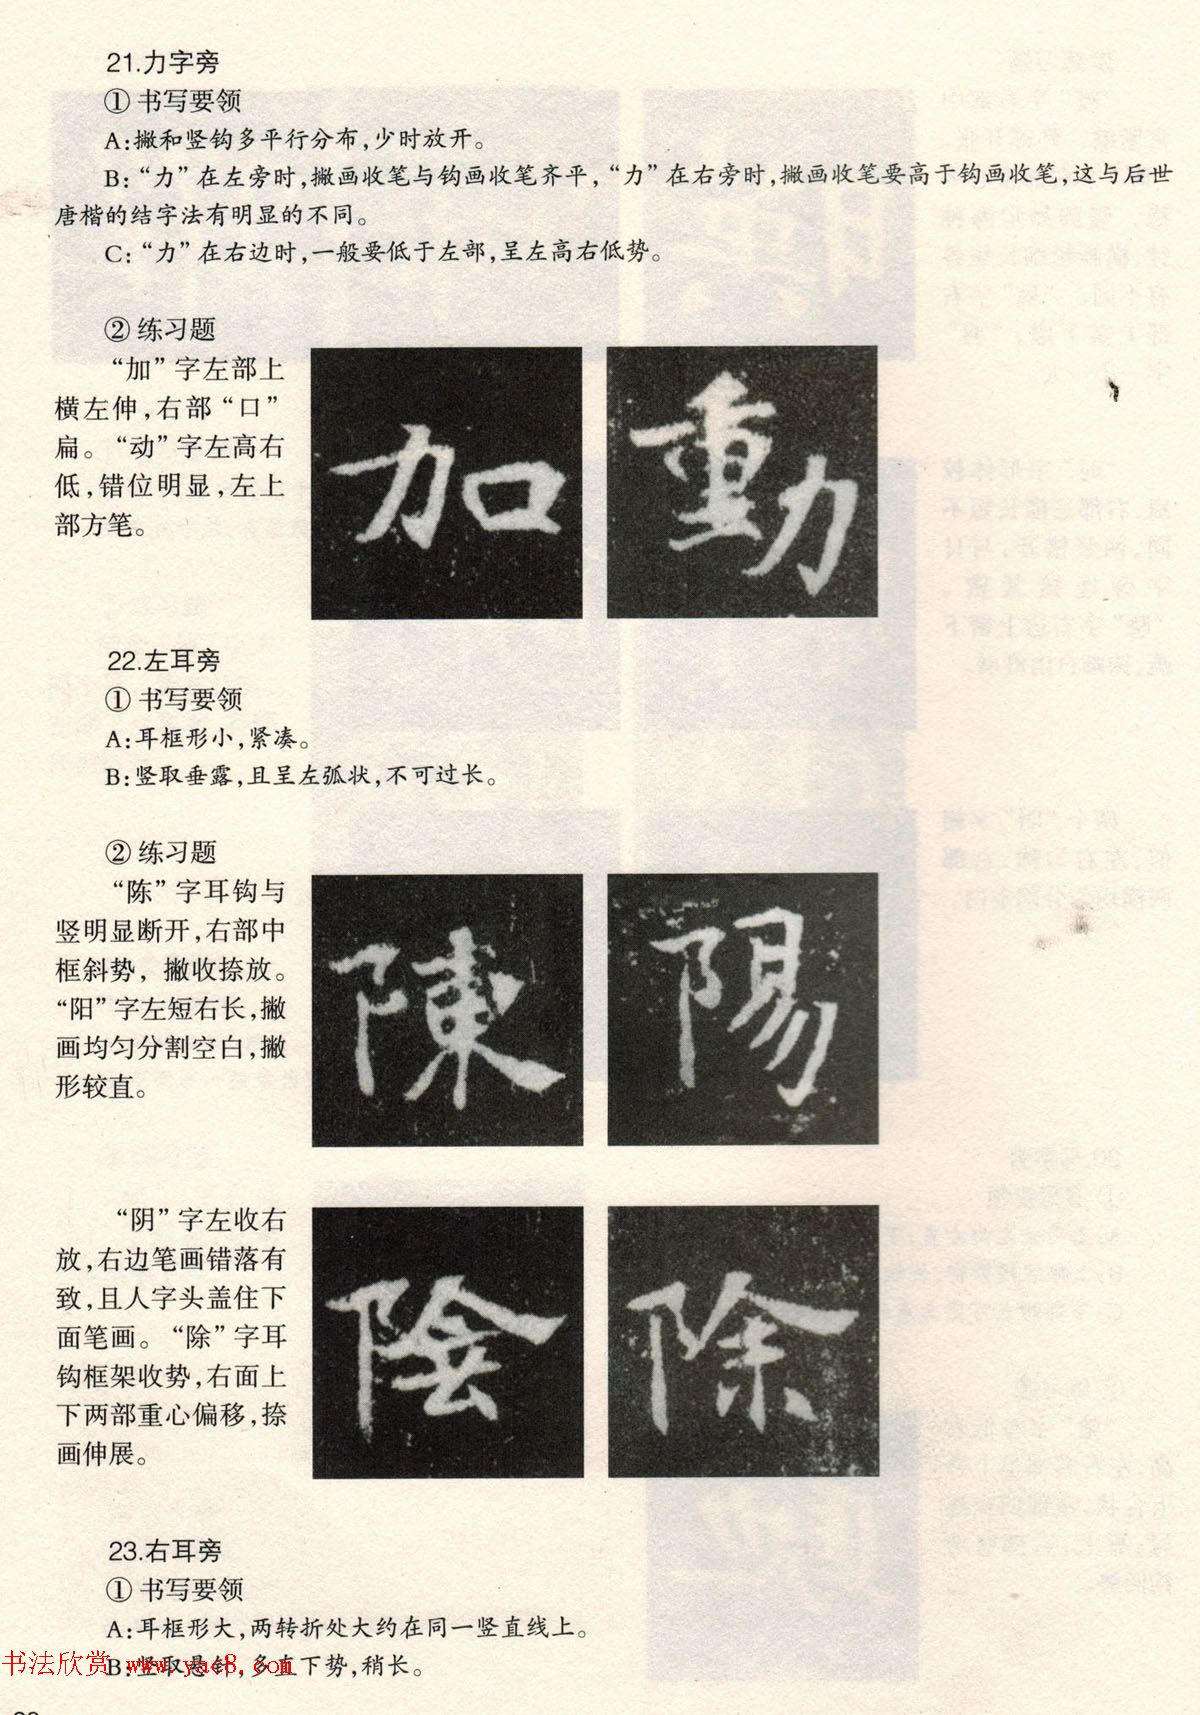 21.力字旁
① 书写要领
A:撇和竖钩多平行分布,少时放开。
B:“力”在左旁时,撇画收笔与钩画收笔齐平,“力”在右旁时,撇画收笔要高于钩画收笔,这与后世
唐楷的结字法有明显的不同。
C:“力”在右边时,一般要低于左部,呈左高右低势。
② 练习题
“加”字左部上
横左伸,右部“口”
扁。“动”字左高右
低,错位明显,左上
部方笔。
加
動
22.左耳旁
① 书写要领
A:耳框形小,紧凑。
B:竖取垂露,且呈左弧状,不可过长。
② 练习题
“陈”字耳钩与
竖明显断开,右部中
框斜势,撇收捺放。
“阳”字左短右长,撇
画均匀分割空白,撇
形较直。
陳
陽
“阴”字左收右
放,右边笔画错落有
致,且人字头盖住下
面笔画。“除”字耳
钩框架收势,右面上
下两部重心偏移,捺
画伸展。
陰
除
23.右耳旁
① 书写要领
A:耳框形大,两转折处大约在同一竖直线上。
B:竖取悬针,多直下势,稍长。
书法欣赏 www.yac8.com